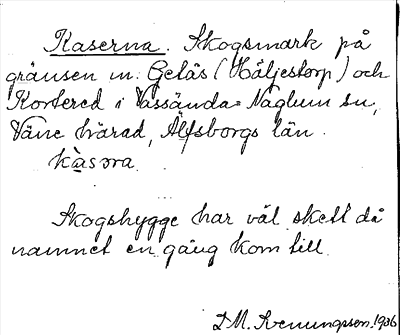 Kaserna. Skogsmark på
gränsen m. Gelås (Häljestorp) och
Kortered i Vassända-Naglum sn,
Väne härad, Älfsborgs län.
kàsəra
Skogshygge har väl skett då
namnet en gång kom till
1936